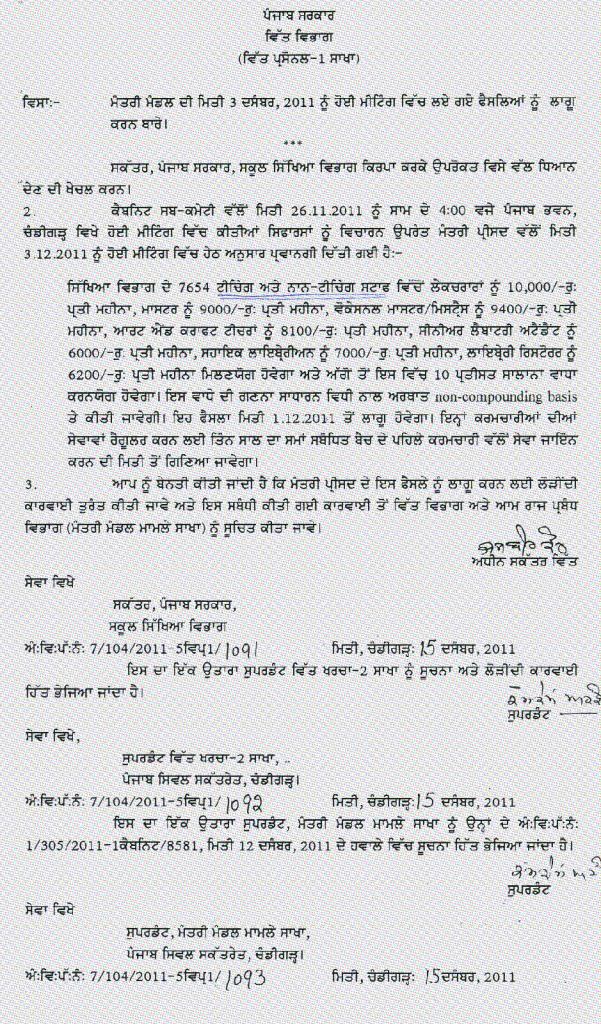 ਪੰਜਾਬ ਸਰਕਾਰ
ਵਿੱਤ ਵਿਭਾਗ
(ਵਿੱਤ ਪ੍ਰਸੋਨਲ-1 ਸਾਖਾ)
ਵਿਸਾ:- ਮੰਤਰੀ ਮੰਡਲ ਦੀ ਮਿਤੀ 3 ਦਸੰਬਰ, 2011 ਨੂੰ ਹੋਈ ਮੀਟਿੰਗ ਵਿੱਚ ਲਏ ਗਏ ਫੈਸਲਿਆਂ ਨੂੰ ਲਾਗੂ
ਕਰਨ ਬਾਰੇ।
***
ਸਕੱਤਰ, ਪੰਜਾਬ ਸਰਕਾਰ, ਸਕੂਲ ਸਿੱਖਿਆ ਵਿਭਾਗ ਕਿਰਪਾ ਕਰਕੇ ਉਪਰੋਕਤ ਵਿਸੇ ਵੱਲ ਧਿਆਨ
ਦੇਣ ਦੀ ਖੇਚਲ ਕਰਨ।
2. ਕੈਬਨਿਟ ਸਬ-ਕਮੇਟੀ ਵੱਲੋਂ ਮਿਤੀ 26.11.2011 ਨੂੰ ਸਾਮ ਦੇ 4:00 ਵਜੇ ਪੰਜਾਬ ਭਵਨ,
ਚੰਡੀਗੜ੍ਹ ਵਿਖੇ ਹੋਈ ਮੀਟਿੰਗ ਵਿੱਚ ਕੀਤੀਆਂ ਸਿਫਾਰਸਾਂ ਨੂੰ ਵਿਚਾਰਨ ਉਪਰੰਤ ਮੰਤਰੀ ਪ੍ਰੀਸਦ ਵੱਲੋਂ ਮਿਤੀ
3.12.2011 ਨੂੰ ਹੋਈ ਮੀਟਿੰਗ ਵਿੱਚ ਹੇਠ ਅਨੁਸਾਰ ਪ੍ਰਵਾਨਗੀ ਦਿੱਤੀ ਗਈ ਹੈ:-
ਸਿੱਖਿਆ ਵਿਭਾਗ ਦੇ 7654 ਟੀਚਿੰਗ ਅਤੇ ਨਾਨ-ਟੀਚਿੰਗ ਸਟਾਫ ਵਿੱਚੋਂ ਲੈਕਚਰਾਰਾਂ ਨੂੰ 10,000/-ਰੁ:
ਪ੍ਰਤੀ ਮਹੀਨਾ, ਮਾਸਟਰ ਨੂੰ 9000/-ਰੁ: ਪ੍ਰਤੀ ਮਹੀਨਾ, ਵੋਕੇਸਨਲ ਮਾਸਟਰ/ਮਿਸਟ੍ਰੈਸ ਨੂੰ 9400/-ਰੁ: ਪ੍ਰਤੀ
ਮਹੀਨਾ, ਆਰਟ ਐਂਡ ਕਰਾਫਟ ਟੀਚਰਾਂ ਨੂੰ 8100/-ਰੁ: ਪ੍ਰਤੀ ਮਹੀਨਾ, ਸੀਨੀਅਰ ਲੈਬਾਟਰੀ ਅਟੈਡੈਂਟ ਨੂੰ
6000/-ਰੁ: ਪ੍ਰਤੀ ਮਹੀਨਾ, ਸਹਾਇਕ ਲਾਇਬ੍ਰੇਰੀਅਨ ਨੂੰ 7000/-ਰੁ: ਪ੍ਰਤੀ ਮਹੀਨਾ, ਲਾਇਬ੍ਰੇਰੀ ਰਿਸਟੋਰਰ ਨੂੰ
6200/-ਰੁ: ਪ੍ਰਤੀ ਮਹੀਨਾ ਮਿਲਣਯੋਗ ਹੋਵੇਗਾ ਅਤੇ ਅੱਗੋਂ ਤੋਂ ਇਸ ਵਿੱਚ 10 ਪ੍ਰਤੀਸਤ ਸਾਲਾਨਾ ਵਾਧਾ
ਕਰਨਯੋਗ ਹੋਵੇਗਾ। ਇਸ ਵਾਧੇ ਦੀ ਗਣਨਾ ਸਾਧਾਰਨ ਵਿਧੀ ਨਾਲ ਅਰਥਾਤ non-compounding basis
ਤੇ ਕੀਤੀ ਜਾਵੇਗੀ। ਇਹ ਫੈਸਲਾ ਮਿਤੀ 1.12.2011 ਤੋਂ ਲਾਗੂ ਹੋਵੇਗਾ। ਇਨ੍ਹਾਂ ਕਰਮਚਾਰੀਆਂ ਦੀਆਂ
ਸੇਵਾਵਾਂ ਰੈਗੂਲਰ ਕਰਨ ਲਈ ਤਿੰਨ ਸਾਲ ਦਾ ਸਮਾਂ ਸਬੰਧਿਤ ਬੈਚ ਦੇ ਪਹਿਲੇ ਕਰਮਚਾਰੀ ਵੱਲੋਂ ਸੇਵਾ ਜਾਇੰਨ
ਕਰਨ ਦੀ ਮਿਤੀ ਤੋਂ ਗਿਣਿਆ ਜਾਵੇਗਾ।
3. ਆਪ ਨੂੰ ਬੇਨਤੀ ਕੀਤੀ ਜਾਂਦੀ ਹੈ ਕਿ ਮੰਤਰੀ ਪ੍ਰੀਸਦ ਦੇ ਇਸ ਫੈਸਲੇ ਨੂੰ ਲਾਗੂ ਕਰਨ ਲਈ ਲੋੜੀਂਦੀ
ਕਾਰਵਾਈ ਤੁਰੰਤ ਕੀਤੀ ਜਾਵੇ ਅਤੇ ਇਸ ਸਬੰਧੀ ਕੀਤੀ ਗਈ ਕਾਰਵਾਈ ਤੋਂ ਵਿੱਤ ਵਿਭਾਗ ਅਤੇ ਆਮ ਰਾਜ ਪ੍ਰਬੰਧ
ਵਿਭਾਗ (ਮੰਤਰੀ ਮੰਡਲ ਮਾਮਲੇ ਸਾਖਾ) ਨੂੰ ਸੂਚਿਤ ਕੀਤਾ ਜਾਵੇ।
ਅਧੀਨ ਸਕੱਤਰ ਵਿੱਤ
ਸੇਵਾ ਵਿਖੇ
ਸਕੱਤਰ, ਪੰਜਾਬ ਸਰਕਾਰ,
ਸਕੂਲ ਸਿੱਖਿਆ ਵਿਭਾਗ
ਅੰ:ਵਿ:ਪੱ:ਨੰ: 7/104/2011-5ਵਿਪ੍ਰ1/1091 ਮਿਤੀ, ਚੰਡੀਗੜ੍ਹ: 15 ਦਸੰਬਰ, 2011
ਇਸ ਦਾ ਇੱਕ ਉਤਾਰਾ ਸੁਪਰਡੰਟ ਵਿੱਤ ਖਰਚਾ-2 ਸਾਖਾ ਨੂੰ ਸੂਚਨਾ ਅਤੇ ਲੋੜੀਂਦੀ ਕਾਰਵਾਈ
ਹਿੱਤ ਭੇਜਿਆ ਜਾਂਦਾ ਹੈ।
ਸੁਪਰਡੰਟ
ਸੇਵਾ ਵਿਖੇ,
ਸੁਪਰਡੰਟ ਵਿੱਤ ਖਰਚਾ-2 ਸਾਖਾ,
ਪੰਜਾਬ ਸਿਵਲ ਸਕੱਤਰੇਤ, ਚੰਡੀਗੜ੍ਹ।
ਅੰ:ਵਿ:ਪੱ:ਨੰ: 7/104/2011-5ਵਿਪ੍ਰ1/1092 ਮਿਤੀ, ਚੰਡੀਗੜ੍ਹ: 15 ਦਸੰਬਰ, 2011
ਇਸ ਦਾ ਇੱਕ ਉਤਾਰਾ ਸੁਪਰਡੰਟ, ਮੰਤਰੀ ਮੰਡਲ ਮਾਮਲੇ ਸਾਖਾ ਨੂੰ ਉਨ੍ਹਾਂ ਦੇ ਅੰ:ਵਿ:ਪੱ:ਨੰ:
1/305/2011-1ਕੈਬਨਿਟ/8581, ਮਿਤੀ 12 ਦਸੰਬਰ, 2011 ਦੇ ਹਵਾਲੇ ਵਿੱਚ ਸੂਚਨਾ ਹਿੱਤ ਭੇਜਿਆ ਜਾਂਦਾ ਹੈ।
ਸੁਪਰਡੰਟ
ਸੇਵਾ ਵਿਖੇ
ਸੁਪਰਡੰਟ, ਮੰਤਰੀ ਮੰਡਲ ਮਾਮਲੇ ਸਾਖਾ,
ਪੰਜਾਬ ਸਿਵਲ ਸਕੱਤਰੇਤ, ਚੰਡੀਗੜ੍ਹ।
ਅੰ:ਵਿ:ਪੱ:ਨੰ: 7/104/2011-5ਵਿਪ੍ਰ1/1093 ਮਿਤੀ, ਚੰਡੀਗੜ੍ਹ: 15 ਦਸੰਬਰ, 2011